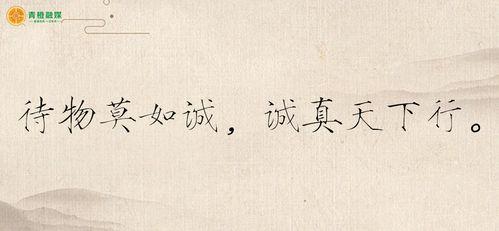 青橙融媒
待物莫如诚，诚真天下行。